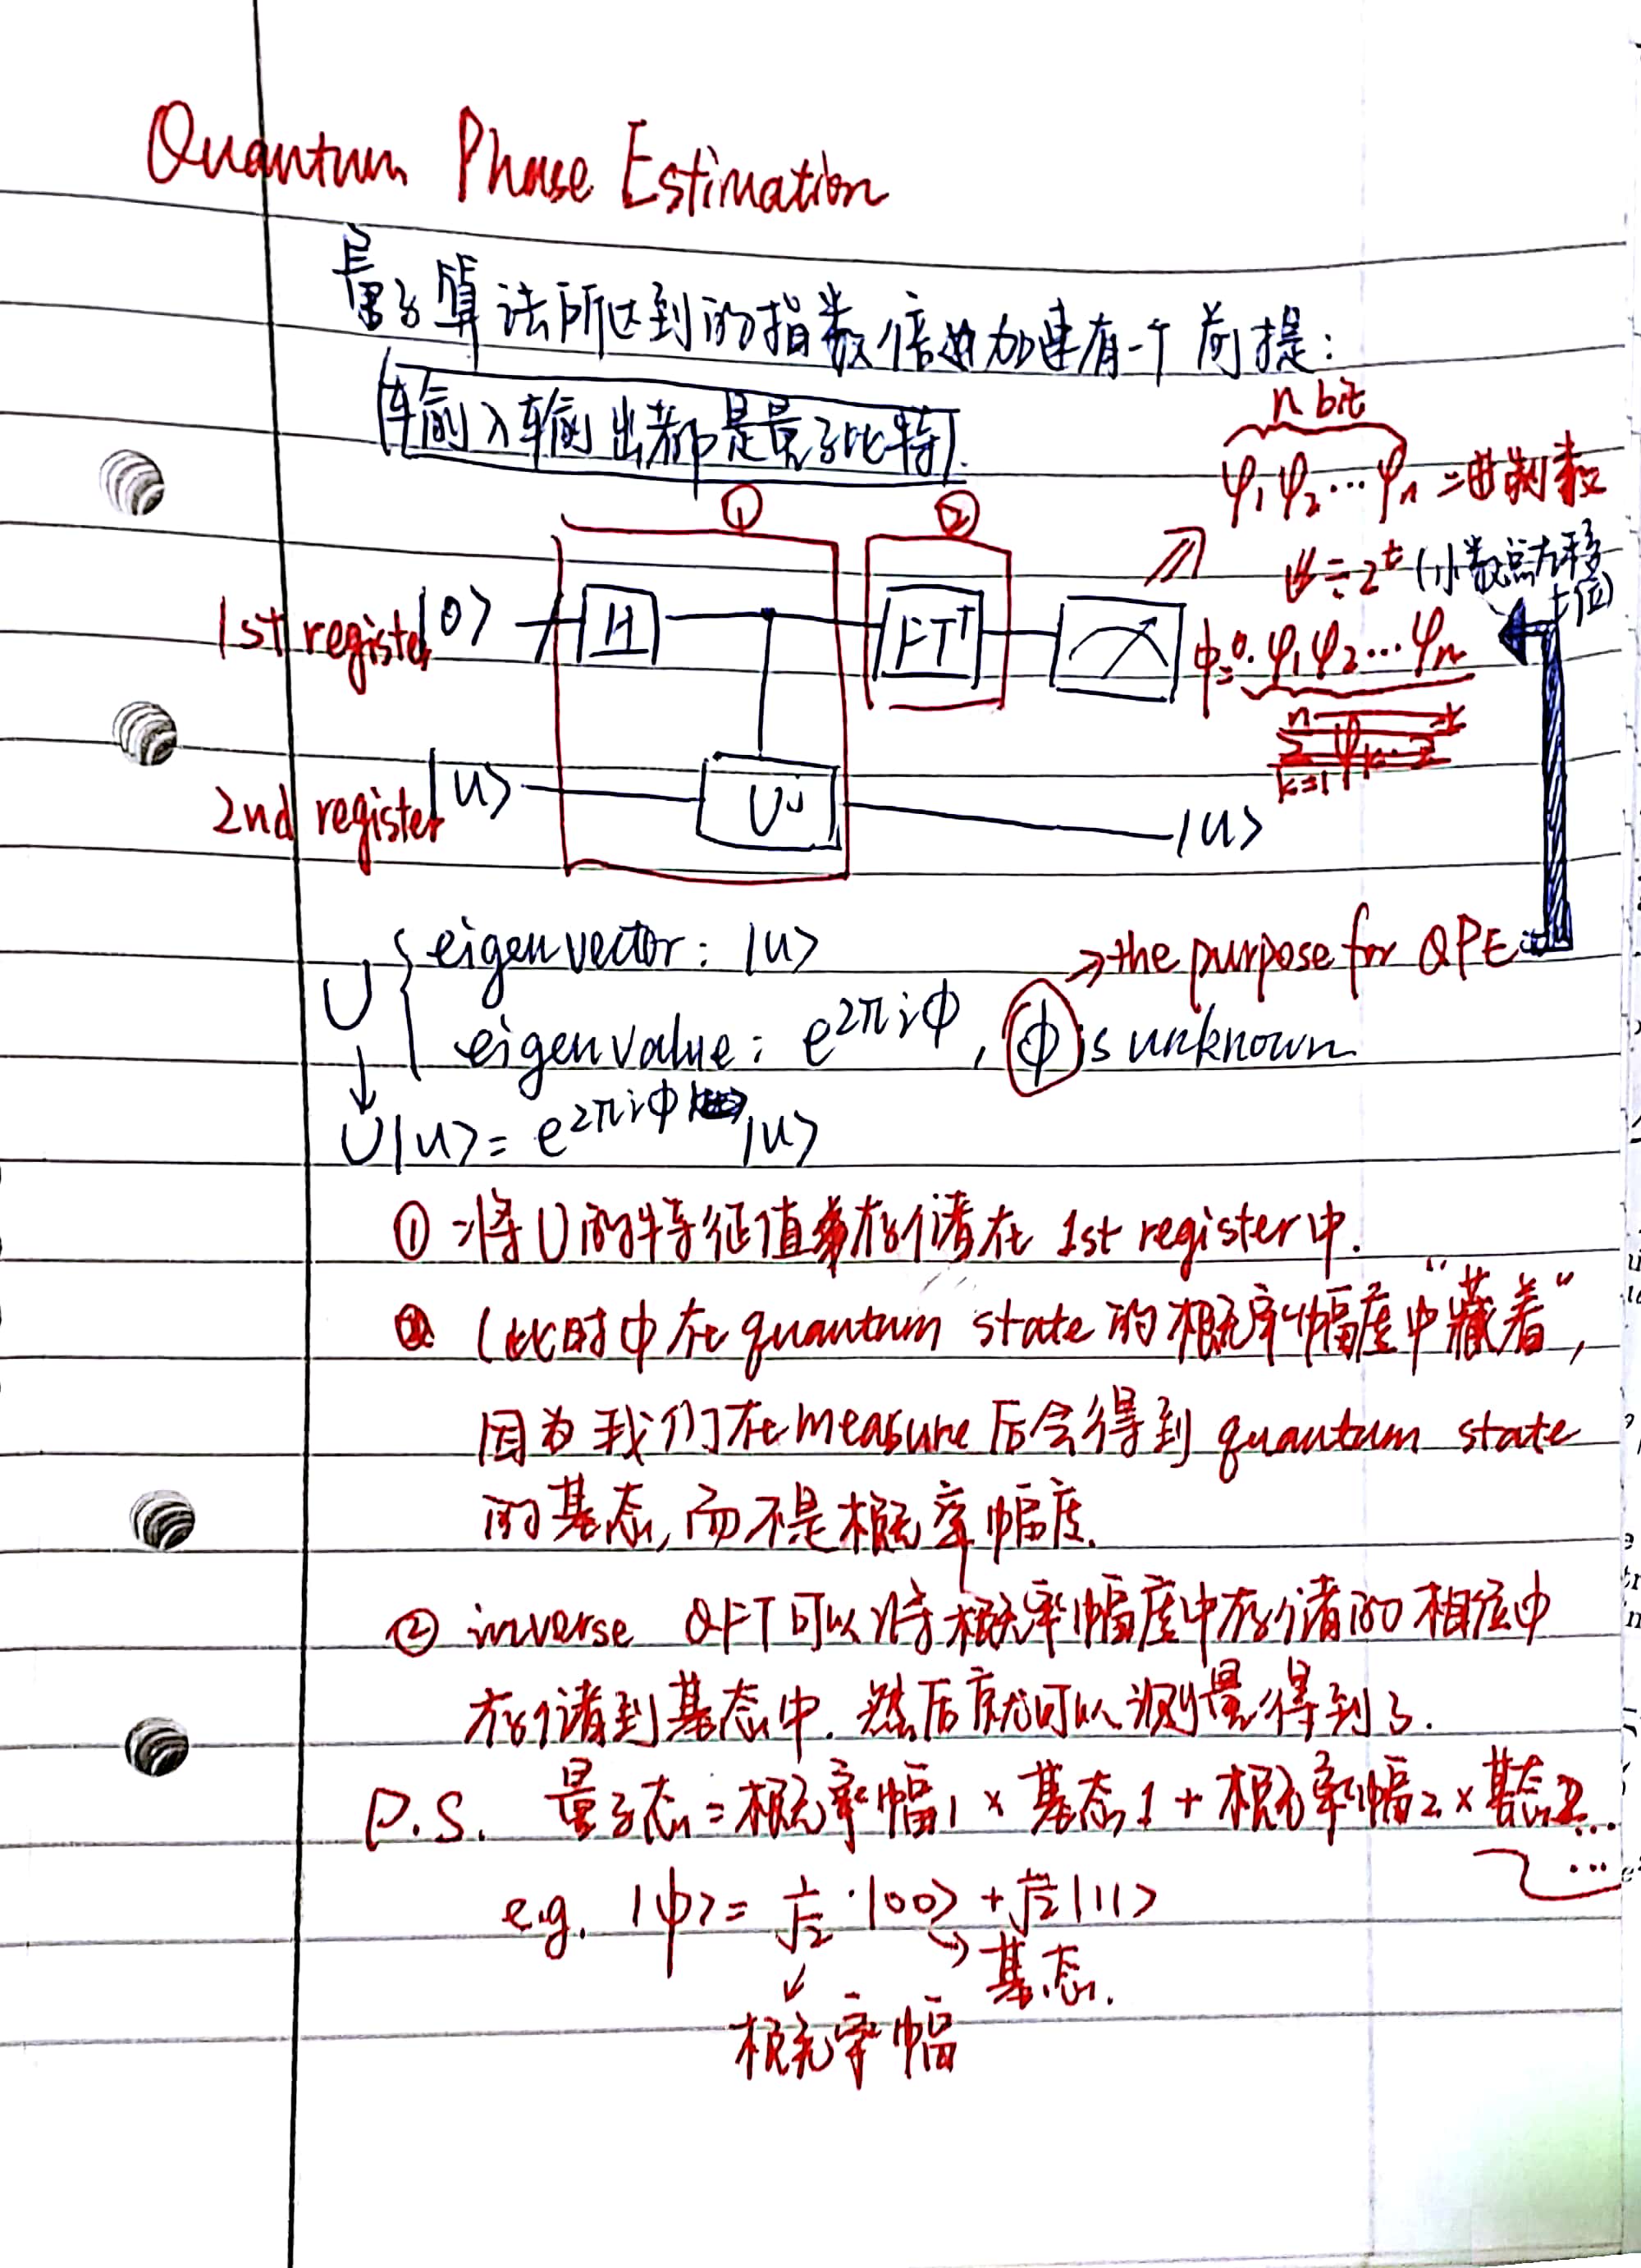 Quantum Phase Estimation
量子算法所达到的指数倍的加速有一个前提:
输入输出都是量子比特.
n bit
φ₁φ₂...φₙ 二进制数
① ②
÷2^t (小数点左移
t位)
1st register |0> H FT† φ=0.φ₁φ₂...φₙ
2nd register |u> U^j |u>
U { eigenvector: |u> →the purpose for QPE
eigenvalue: e^{2πiφ}, φ is unknown
↓
U|u>= e^{2πiφ}|u>
① 将U的特征值存储在 1st register中.
(此时中在quantum state的概率幅度中"藏着",
因为我们在measure后会得到 quantum state
的基态,而不是概率幅度.
② inverse QFT可以将概率幅度中存储的相位中
存储到基态中. 然后就可以测量得到了.
P.S. 量子态=概率幅1 × 基态1 + 概率幅2 × 基态2...
...
e.g. |ψ>= 1/√2 · |00> + 1/√2 |11>
基态.
概率幅